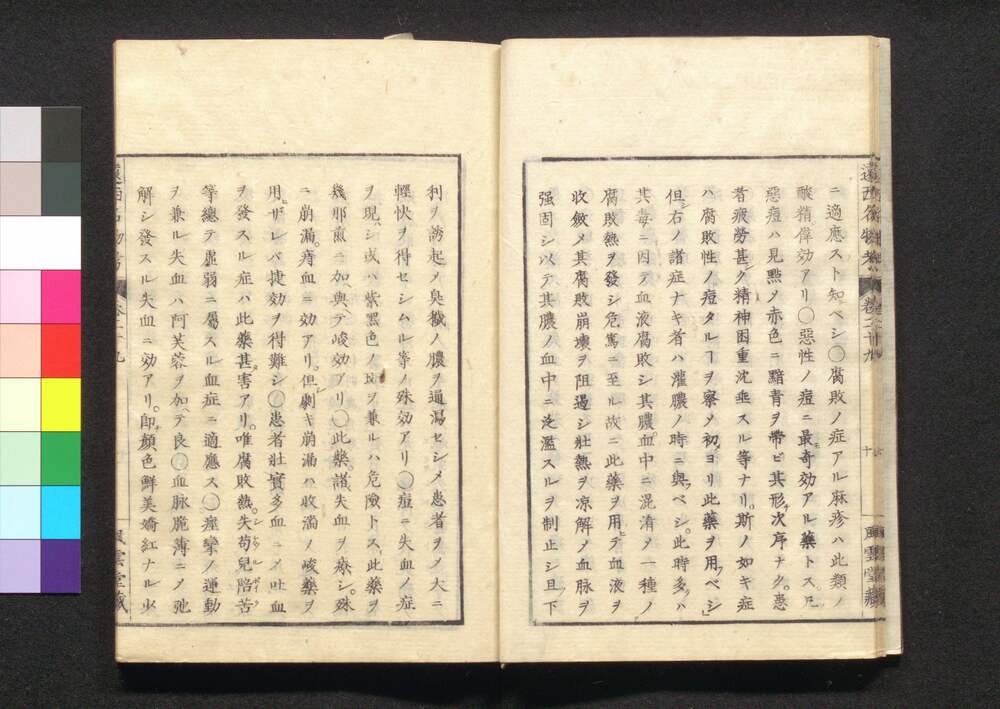 ニ適應スト知ベシ〇腐敗ノ症アル麻疹ハ此類ノ
酸精偉効アリ〇惡性ノ痘ニ最奇効アル藥トス凡
惡痘ハ見點ノ赤色ニ黯青ヲ帶ビ其形次序ナク患
者疲勞甚シク精神困重沈垂スル等ナリ斯ノ如キ症
ハ腐敗性ノ痘タルヿヲ察メ初ヨリ此藥ヲ用ベシ
但シ右ノ諸症ナキ者ハ灌膿ノ時ニ與ベシ此時多ハ
其毒ニ因テ血液腐敗シ其膿血中ニ混淆メ一種ノ
腐敗熱ヲ發シ危篤ニ至ル故ニ此藥ヲ用テ血液ヲ
收斂メ其腐敗崩壞ヲ阻遏シ壯熱ヲ凉解メ血脉ヲ
强固シ以テ其膿ノ血中ニ泛濫スルヲ制止シ且下
利ヲ誘起メ臭穢ノ膿ヲ通瀉セシメ患者ヲメ大ニ
輕快ヲ得セシムル等ノ殊効アリ〇痘ニ失血ノ症
ヲ現シ或ハ紫黑色ノ斑ヲ兼ルハ危險トス此藥ヲ
幾那煎ニ加ヘ與テ峻効アリ〇此藥諸失血ヲ療シ殊
ニ崩漏痔血ニ効アリ但シ劇キ崩漏ハ收濇ノ峻藥ヲ
用ザレバ捷効ヲ得難シ〇患者壯實多血ニメ吐血
ヲ發スル症ハ此藥甚害アリ唯腐敗熱失苟兒陪苦
等總テ虛弱ニ屬スル血症ニ適應ス〇痙攣ノ運動
ヲ兼ル失血ハ阿芙蓉ヲ加テ良〇血脉脆薄ニメ弛
解シ發スル失血ニ効アリ即顔色鮮美嬌紅ナル少